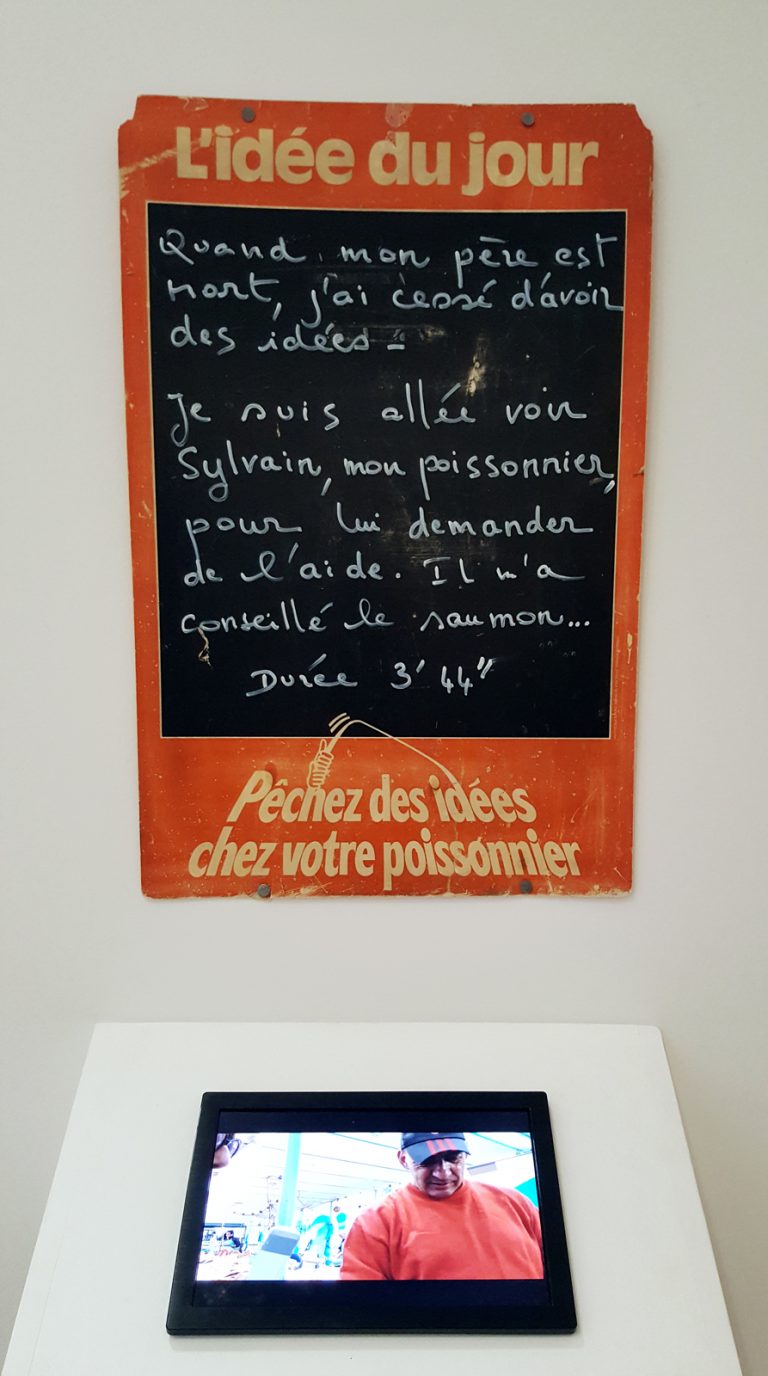 L'idée du jour
Quand mon père est
mort, j'ai cessé d'avoir
des idées -
Je suis allée voir
Sylvain, mon poissonnier,
pour lui demander
de l'aide. Il m'a
conseillé le saumon...
Durée 3' 44"
Pêchez des idées
chez votre poissonnier